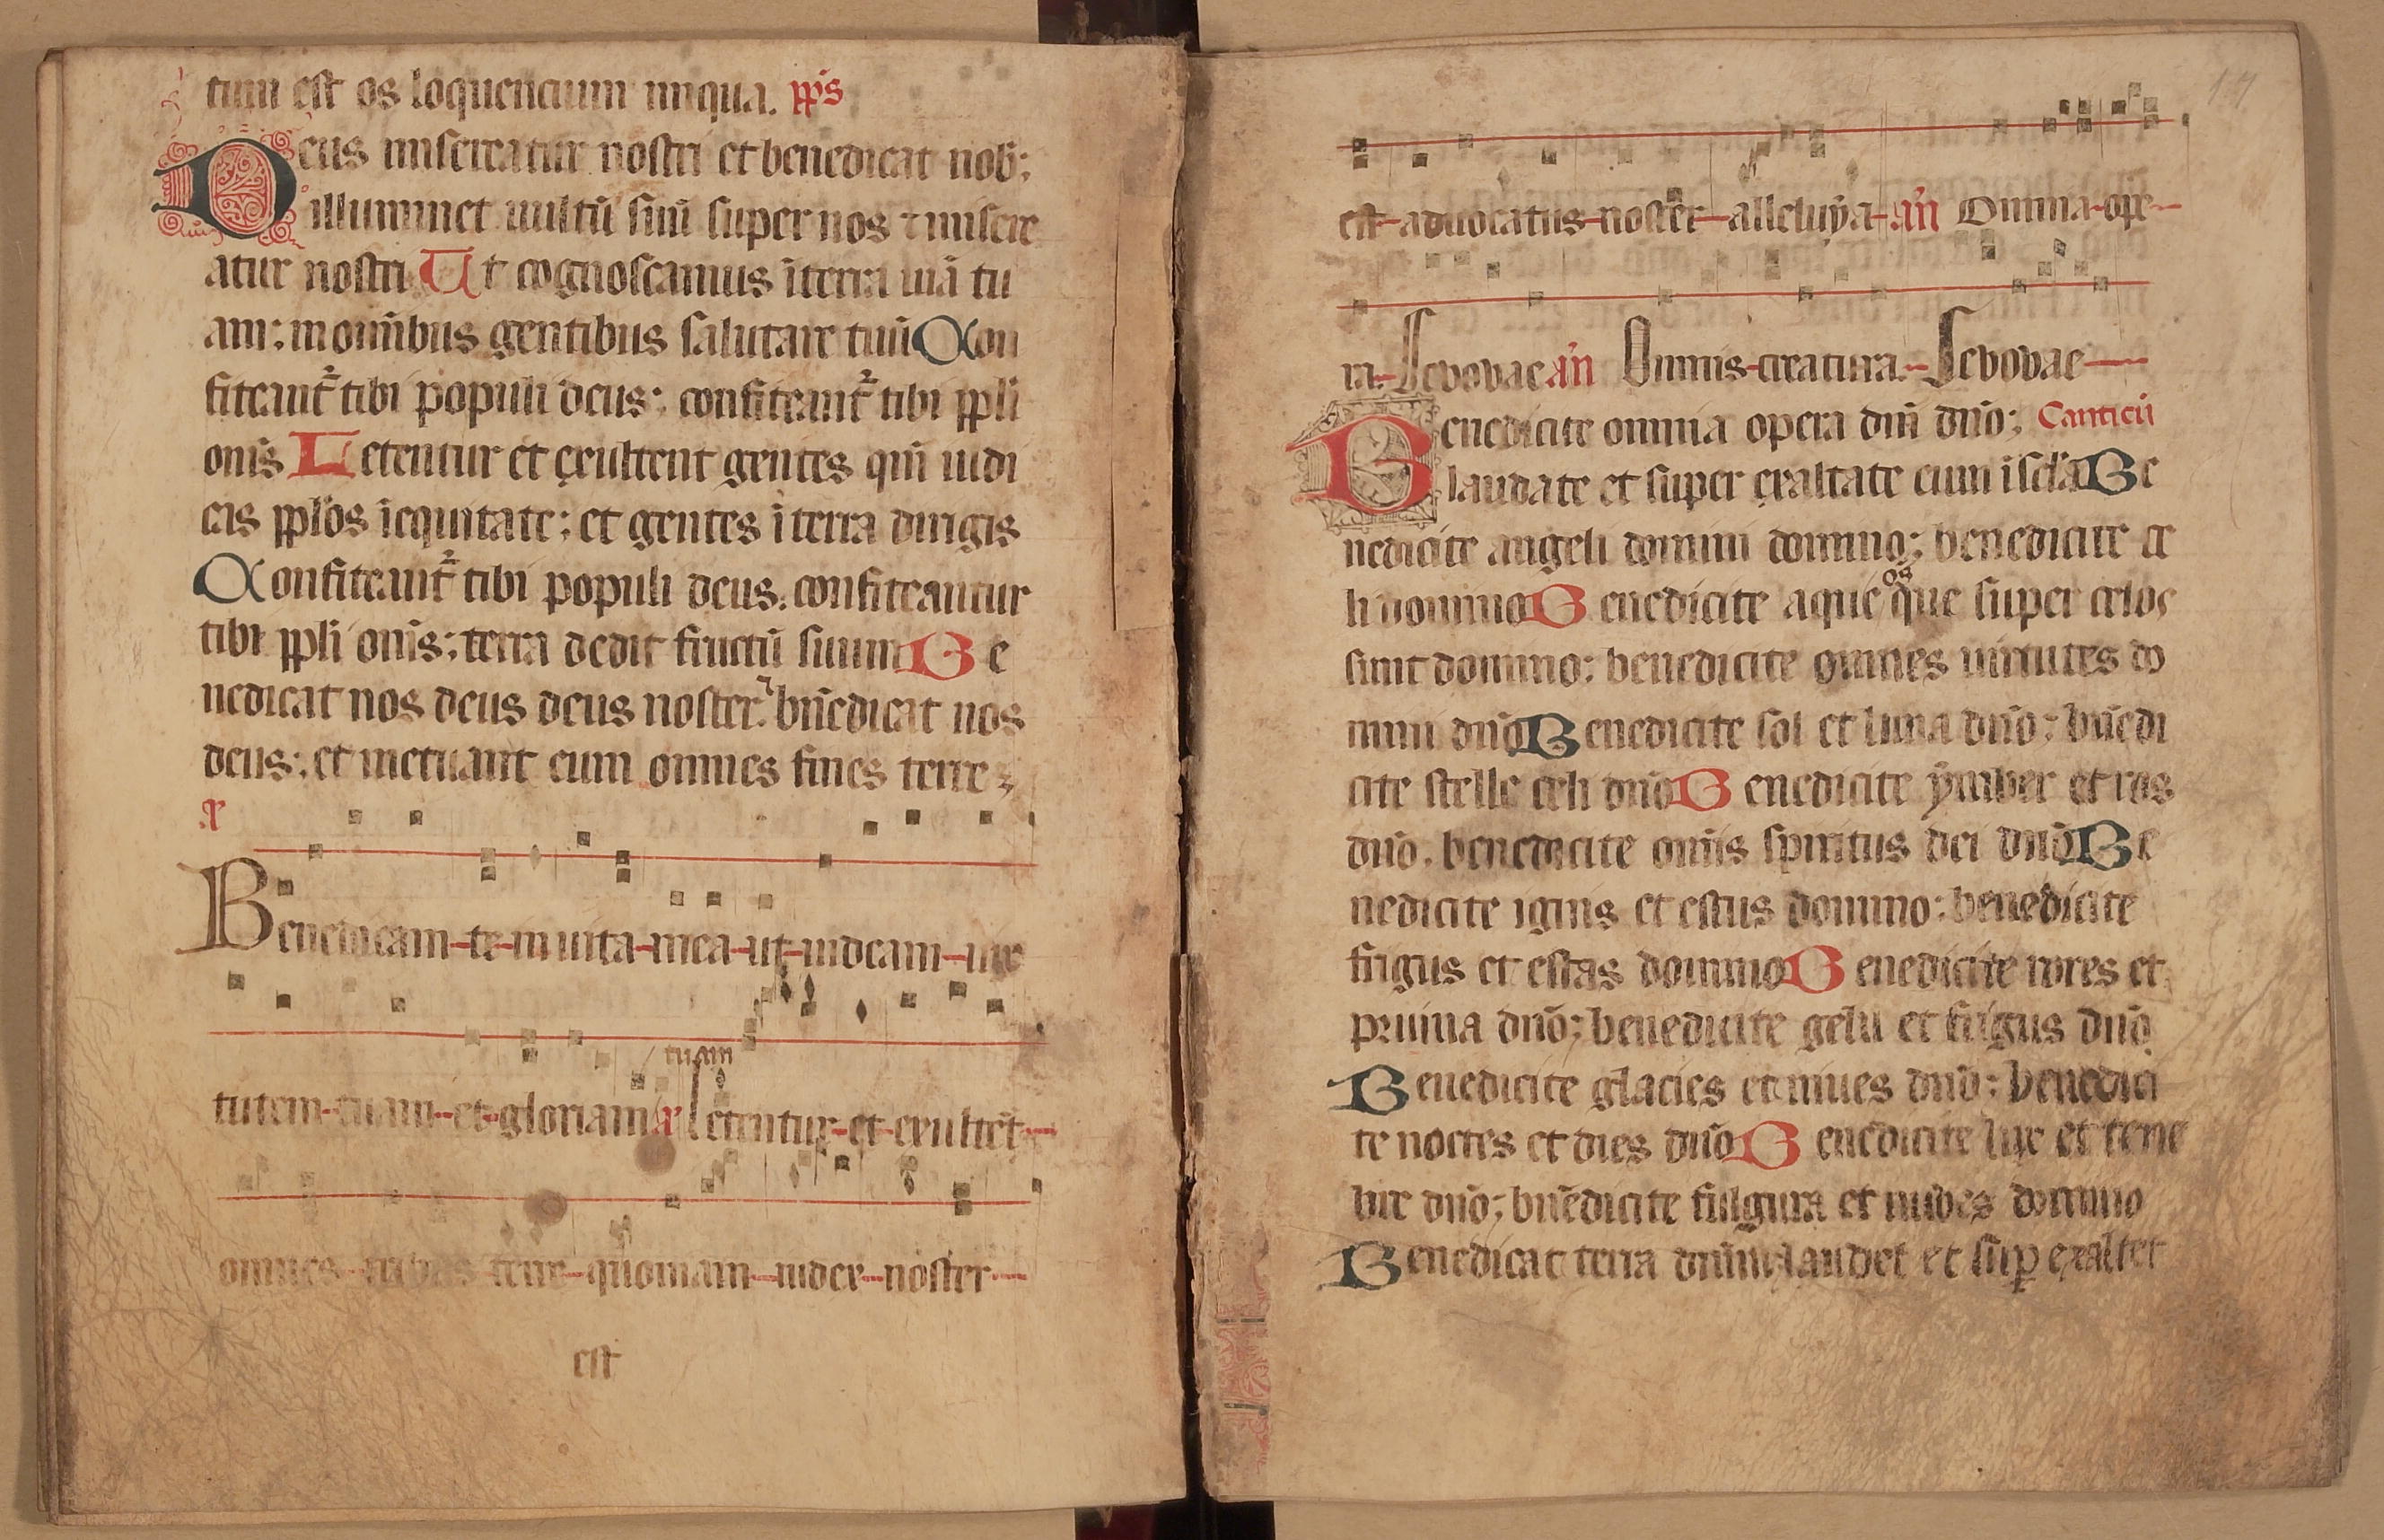 tum est os loquencium iniqua. pp̄s
Deus misereatur nostri et benedicat nob̄:
illuminet uultū suū super nos ⁊ misere
atur nostri Ut cognoscamus ī terra uiā tu
am: in omībus gentibus salutare tuū Con
fiteant᷑ tibi populi deus: confiteant᷑ tibi pp̄li
om̄s Letentur et exultent gentes qm̄ iudi
cas pp̄los īequitate: et gentes ī terra dirigis
Confiteant᷑ tibi populi deus: confiteantur
tibi pp̄li om̄s: terra dedit fructū suum Be
nedicat nos deus deus noster: bn̄edicat nos
deus: et metuant eum omnes fines terre
Benedicam te in uita mea ut uideam uir
tuam
tutem tuam et gloriam Letentur et exultēt
omnes urbes terre quoniam iudex noster
est
17
est aduocatus noster alleluya an̄ Omnia ope
ra. Seuouae an̄ Omnis creatura. Seuouae
Benedicite omnia opera dn̄i dn̄o: Canticū
laudate et super exaltate eum ī scl̄a Be
nedicite angeli domini domino: benedicite ce
li domino Benedicite aque os que super celos
sunt domino: benedicite omnes uirtutes do
mini dn̄o Benedicite sol et luna dn̄o: bn̄edi
cite stelle celi dn̄o Benedicite ymber et ros
dn̄o. benedicite om̄is spiritus dei dn̄o Be
nedicite ignis et estus domino: benedicite
frigus et estas domino Benedicite rores et
pruina dn̄o: benedicite gelu et frigus dn̄o
Benedicite glacies et niues dn̄o: benedici
te noctes et dies dn̄o Benedicite lux et tene
bre dn̄o: bn̄edicite fulgura et nubes domino
Benedicat terra dominū laudet et suꝑ exaltet